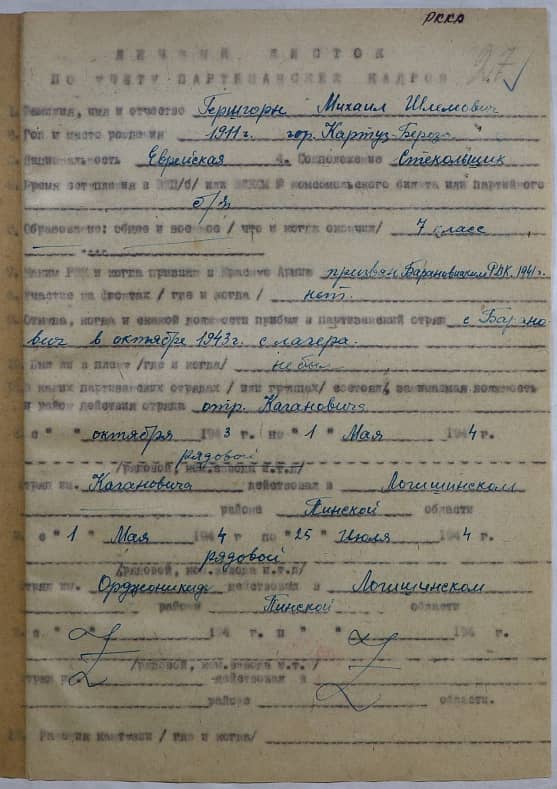 РККА
ЛИЧНЫЙ ЛИСТОК
27
ПО УЧЕТУ ПАРТИЗАНСКИХ КАДРОВ
1. Фамилия, имя и отчество Герштгорн Михаил Шлемович
2. Год и место рождения 1911г. гор. Картуз-Береза
3. Национальность Еврейская 4. Соцположение Стекольщик
5. Время вступления в ВКП/б/ или ВЛКСМ № комсомольского билета или партийного
б/п
6. Образование: общее и военное / что и когда окончил/ 7 класс
7. Каким РВК и когда призван в Красную Армию призван Барановичским РВК. 1941г.
8. Участие на фронтах / где и когда / нет.
9. Откуда, когда и с какой должности прибыл в партизанский отряд с Барано-
вич в октябре 1943г. с лагера.
10. Был ли в плену /где и когда/ не был
11. В каких партизанских отрядах / или группах/ состоял, занимаемая должность
и район действия отряда отр. Кагановича
1. с " " октября 1943 г. по "1" Мая 1944 г.
рядовой
/рядовой, ком. взвода и.т.п/
отряд им. Кагановича действовал в Логишинском
районе Пинской области
2. с "1" Мая 1944 г. по "25" Июля 1944 г.
рядовой
/рядовой, ком. взвода и.т.п/
отряд им. Орджоникидзе действовал в Логишинском
районе Пинской области
3. с " " 194 г. п " " 194 г.
/рядовой, ком. взвода и.т./
отряд действовал в
районе области.
12. Ранения контузии / где и когда/